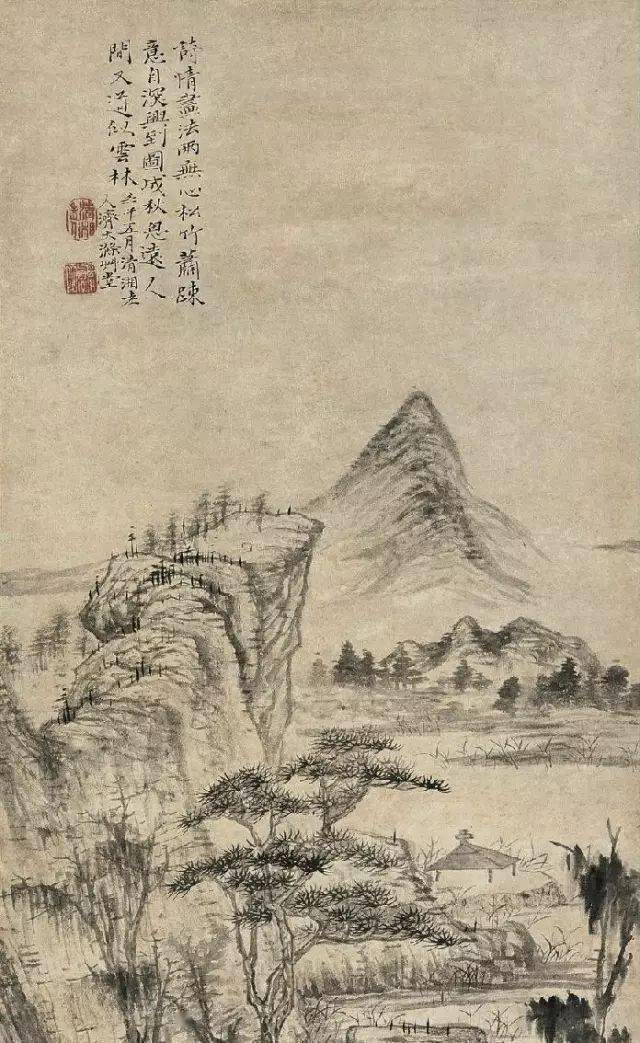 詩情畫法兩無心松竹蕭疎
意自深興到圖成秋思遠人
間又道似雲林
午五月清湘老
人濟大滌艸堂